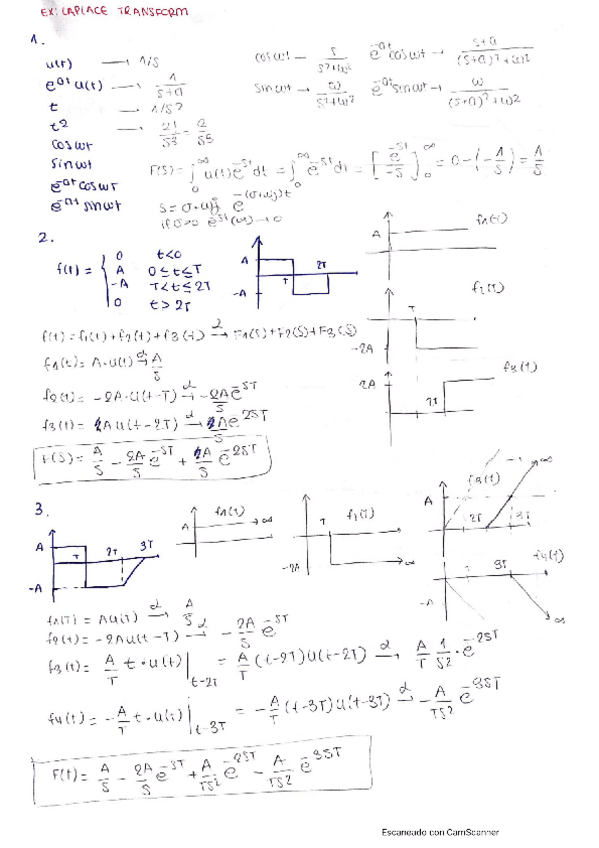 EX: LAPLACE TRANSFORM
1.
u(t) → 1/S
e^at u(t) → 1/(s+a)
t → 1/S²
t² → 2!/S³ = 2/S³
coswt
sinwt
e^-at coswt
e^-at sinwt
coswt — s/(s²+w²) e^-at coswt → (s+a)/((s+a)²+w²)
sinwt → w/(s²+w²) e^-at sinwt → w/((s+a)²+w²)
F(S) = ∫₀^∞ u(t) e^-st dt = ∫₀^∞ e^-st dt = [e^-st/-S]₀^∞ = 0 - (-1/S) = 1/S
2.
f(t) = { 0 t<0
A 0≤t≤T
-A T<t≤2T
0 t>2T
A
T 2T
-A
A f1(t)
f2(t)
T
-2A
f3(t)
2A
2T
f(t) = f1(t) + f2(t) + f3(t) → F1(S) + F2(S) + F3(S)
f1(t) = A·u(t) → A/S
f2(t) = -2A·u(t-T) → -2A/S e^-ST
f3(t) = A u(t-2T) → Ae^-2ST/S
F(S) = A/S - 2A/S e^-ST + A/S e^-2ST
3.
A
T 2T 3T
-A
A f1(t) ∞
T
-2A ∞
f3(t) ∞
A
2T 3T
f4(t)
3T
-A ∞
f1(T) = Au(T) → A/S
f2(t) = -2Au(t-T) → -2A/S e^-ST
f3(t) = A/T t·u(t)|t-2T = A/T (t-2T)u(t-2T) → A/T 1/S² · e^-2ST
f4(t) = -A/T t·u(t)|t-3T = -A/T (t-3T)u(t-3T) → -A/TS² e^-3ST
F(t) = A/S - 2A/S e^-ST + A/TS² e^-2ST - A/TS² e^-3ST
Escaneado con CamScanner